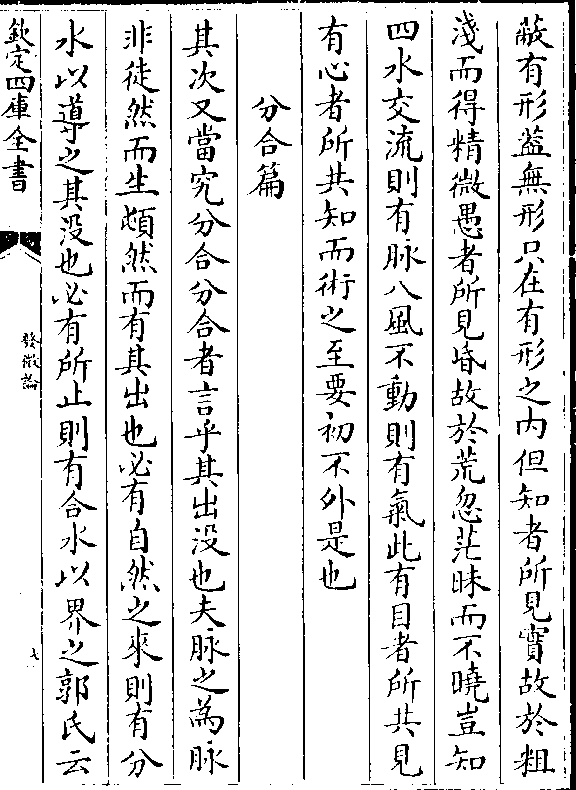 蔽有形葢無形只在有形之内但知者所見實故於粗
淺而得精微愚者所見昏故於荒忽茫昧而不曉豈知
四水交流則有脉八風不動則有氣此有目者所共見
有心者所共知而術之至要初不外是也
分合篇
其次又當究分合分合者言乎其出没也夫脉之為脉
非徒然而生頗然而有其出也必有自然之來則有分
水以導之其没也必有所止則有合水以界之郭氏云
欽定四庫全書
發微論
七